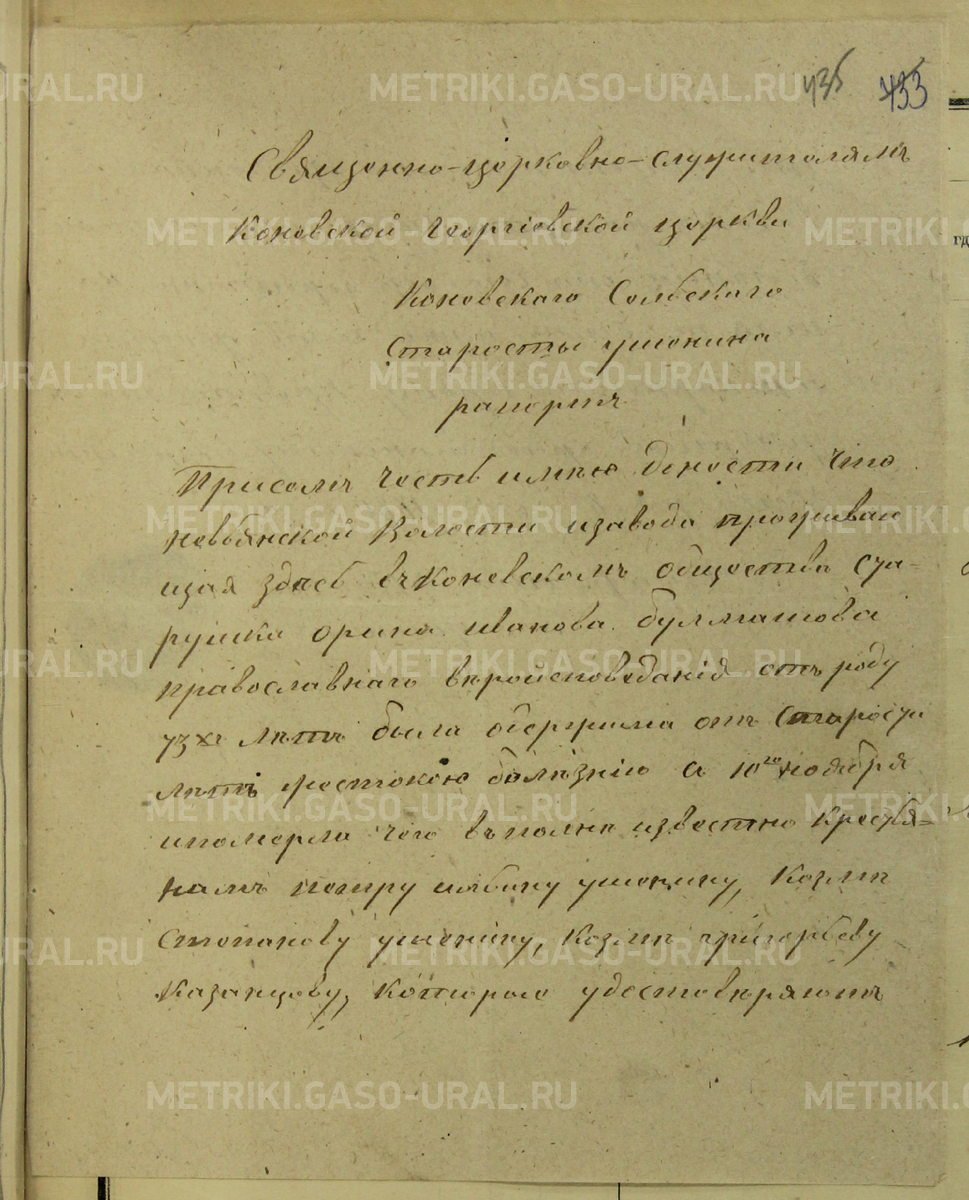 435 433
Священно-церковно-служителямъ
Коневской Георгіевской церкви
Коневскаго Сельскаго
Старосты Ушенина
рапортъ
Присемъ честь имѣю доности что
невьянской Волости изавода прожываю
щая здѣсь въ Коневскомъ обществѣ Ста-
рушка орина иванова
православнаго отъ роду
73хъ лѣтъ была обержима отъ Старости
лѣтъ жестокою болѣзнію а 10го ноября
ипомерла чего въполнѣ известно Крестья-
намъ ушенину, Козмѣ
Степанову ушенину, Козмѣ григорьеву
Казанцову, которые удостовѣряютъ
METRIKI.GASO-URAL.RU